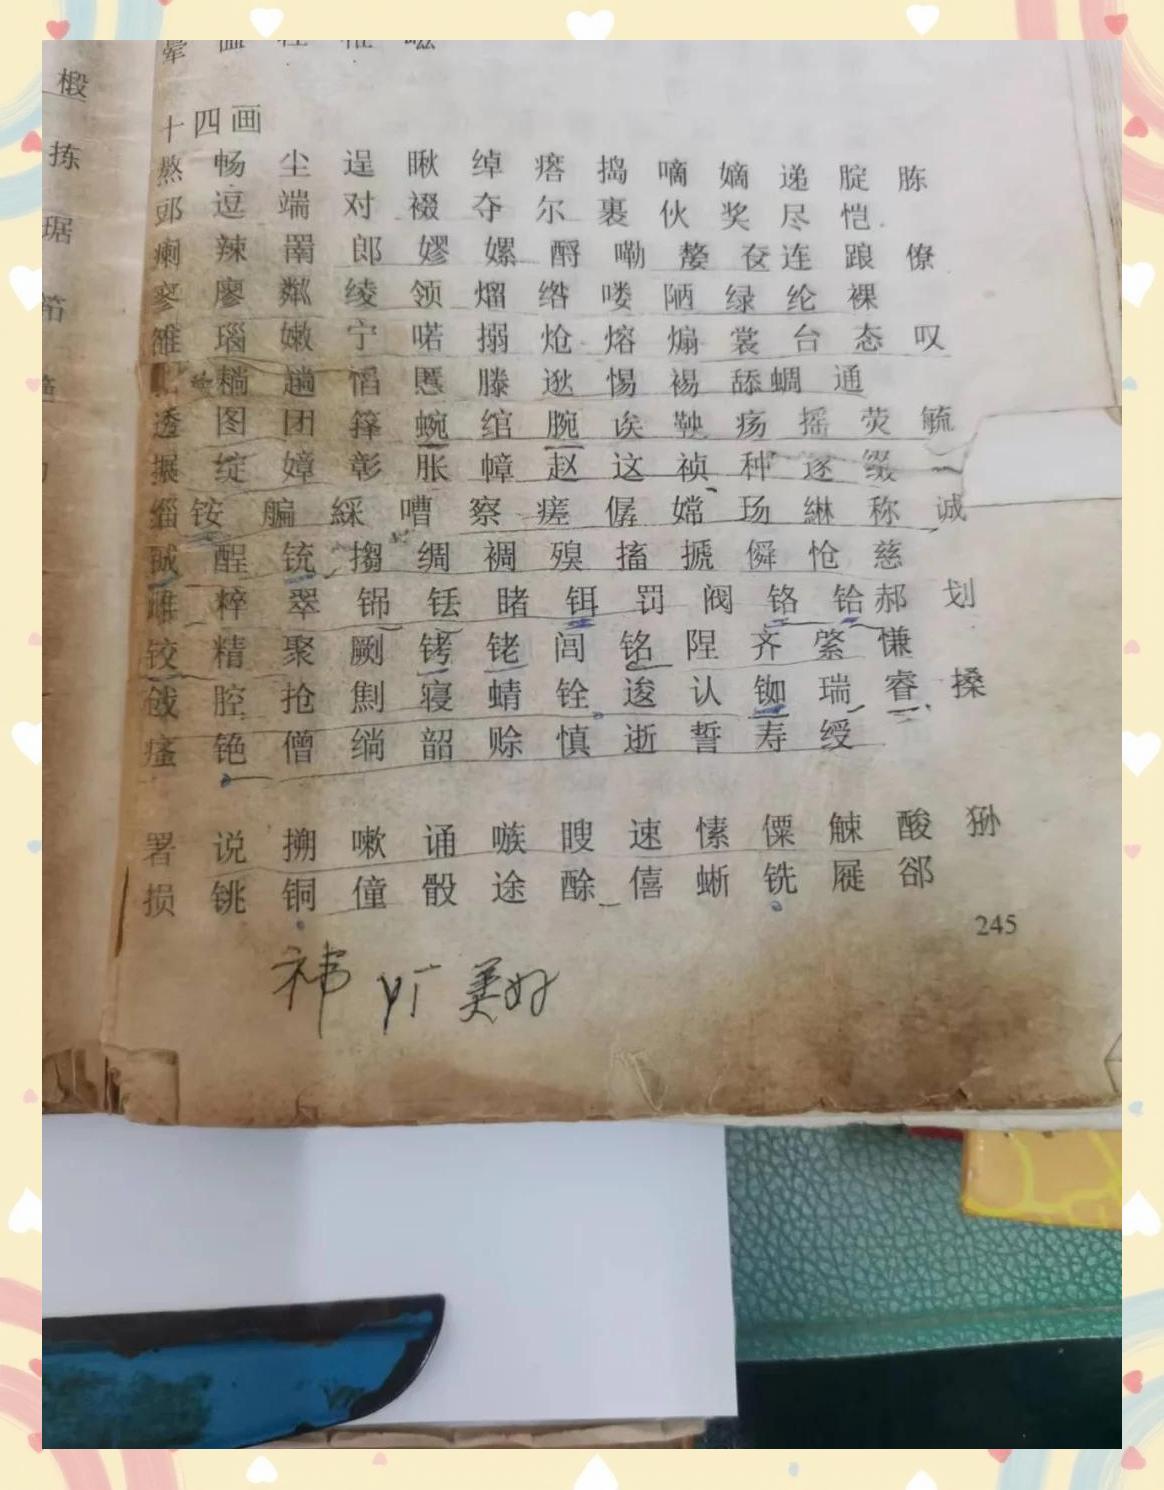 椴
拣
琚
十四画
熬 畅 尘 逞 瞅 绰 瘩 捣 嘀 嫡 递 腚 胨
郖 逗 端 对 裰 夺 尔 裹 伙 奖 尽 恺
瘌 辣 郎 嫪 嫘 酹 嘞 嫠 奁 连 踉 僚
寥 廖 粼 绫 领 熘 绺 喽 陋 绿 纶 裸
雒 瑙 嫩 宁 喏 搦 炝 熔 煽 裳 台 态 叹
耥 趟 慆 慝 滕 逖 惕 裼 舔 蜩 通
透 图 团 箨 蜿 绾 腕 诶 鞅 疡 摇 荧 毓
搌 绽 嫜 彰 胀 幛 赵 这 祯 种 逐 缀
缁 铵 艑 綵 嘈 察 瘥 僝 嫦 玚 綝 称 诚
诫 酲 铳 搊 绸 裯 殠 搐 搋 僢 怆 慈
雌 粹 翠 铞 铥 睹 铒 罚 阀 铬 铪 郝 划
铰 精 聚 劂 铐 铑 闾 铭 陧 齐 綮 慊
戗 腔 抢 劁 寝 蜻 铨 逡 认 铷 瑞 睿 搡
瘙 铯 僧 绱 韶 赊 慎 逝 誓 寿 绶
署 说 搠 嗽 诵 嗾 瞍 速 愫 僳 觫 酸 狲
损 铫 铜 僮 骰 途 酴 僖 蜥 铣 屣 郤
245
祎 美好